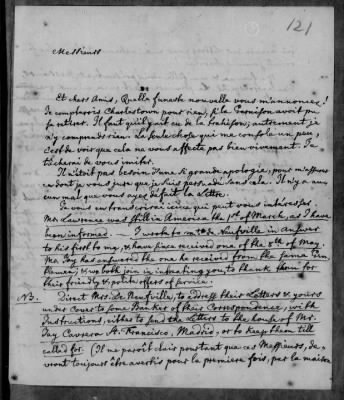 121
Messieurs
Et chers Amis, Quelle funeste nouvelle vous m'annoncez!
Je compterois Charlestown pour rien, si la Garnison avoit pû
se retirer. Il faut qu'il y ait eu de la trahison; autrement je
n'y comprends rien. La seule chose qui me console un peu,
c'est de voir que cela ne vous affecte pas bien vivement. Je
tâcherai de vous imiter.
Il n'étoit pas besoin d'une si grande apologie, pour m'assurer
ce dont je vous jure que je suis persuadé sans cela. Il n'y a au-
cun mal que vous ayez défait la Lettre.
Je vous instruirai ici ce qui peut vous intéresser.
Mr. Lawrence was still in America the 1st of March, as I have
been informed. — I wrote to Mr. de Neufville in answer
to his first to my, & have since received one of the 8th of May.
Mr. Jay has answered the one he received from the same Gen-
tlemen, & we both join in intreating you, to thank them for
their friendly & polite offers of service.
NB. Direct Mrs. De Neufville, to address their Letters & yours
under Cover to some Banker of their Correspondence, with
Instructions, either to send the Letters to the house of Mr.
Jay Carrera St. Francisco, Madrid, or to keep them till
called for. (Il me paroît clair pourtant que ces Messieurs, de-
vront toujours être avertis pour la premiere fois, par la maison